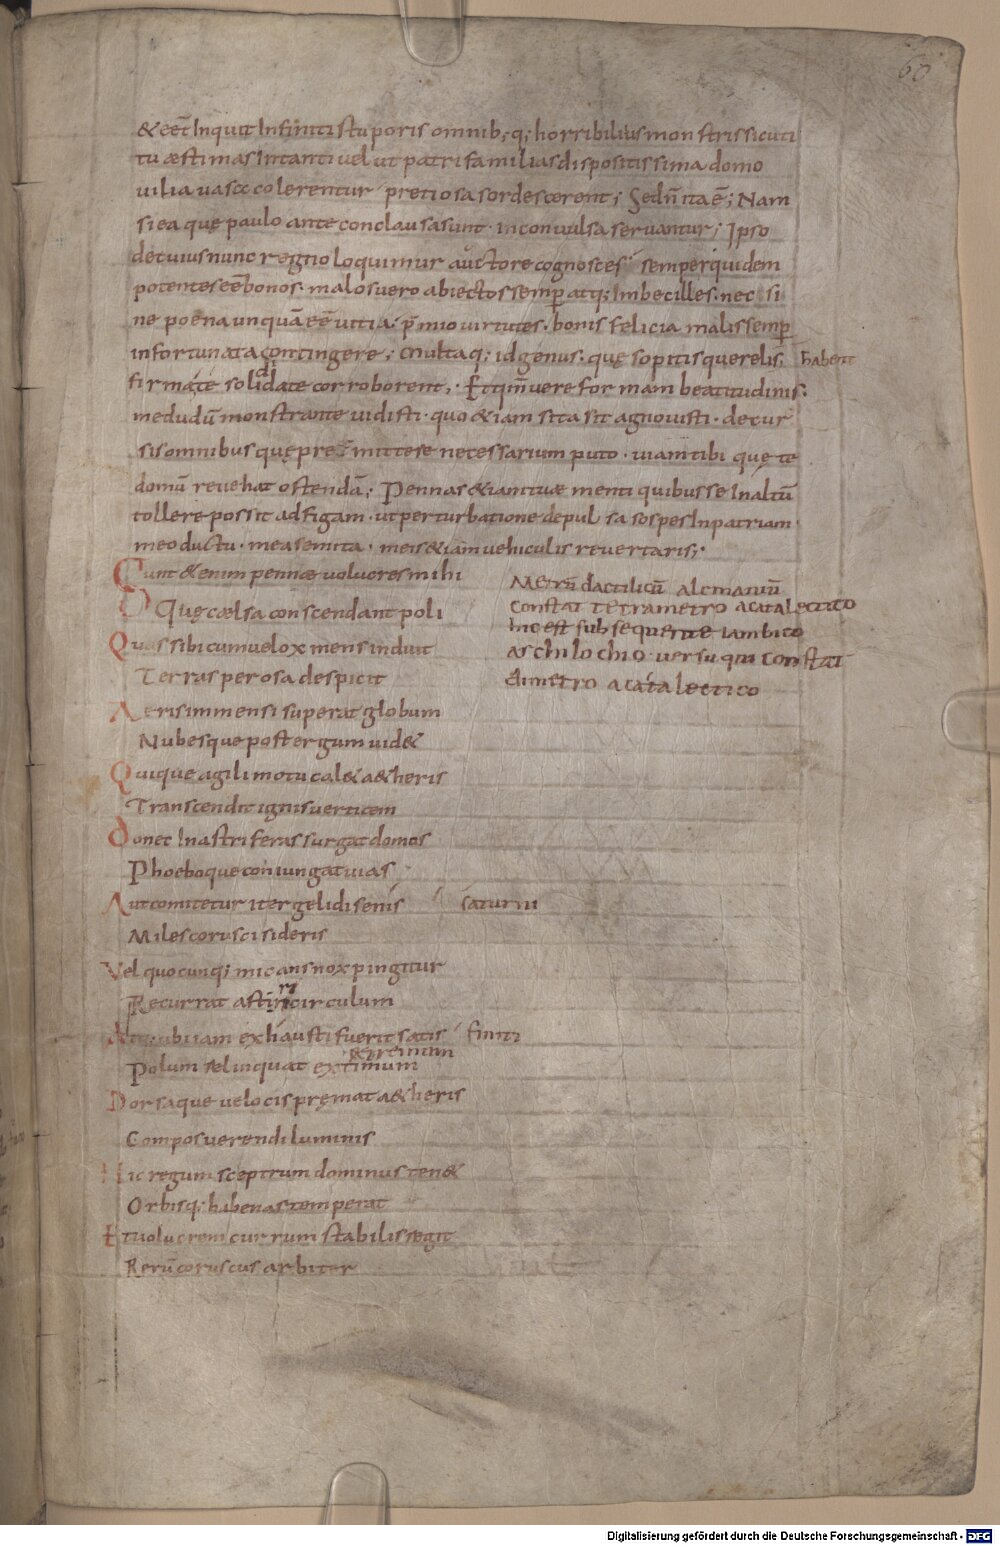 60
& eēt Inquit Infiniti stuporis omnib; q; horribilius monstris sicuti
tu æstimas In tanti uel ut patrifamilias dispositissima domo
uilia uasa colerentur pretiosa sordescerent; Sed n̄ ita ē; Nam
si ea quę paulo ante conclausa sunt · inconuulsa seruantur; Ipso
de cuius nunc regno loquimur auctore cognosces semper quidem
potentes eē bonos · malos uero abiectos semp atq; Imbecilles · nec si
ne poena unquā eē uitia · p̄mio uirtutes · bonis felicia malis semp
infortunata contingere; Multaq; id genus · quę sopitis querelis, habent
firmate soliditate corroborent; Et qm̄ uere formam beatitudinis ·
me dudū monstrante uidisti · quo & iam sita sit agnouisti · decur
sis omnibus quę premittere necessarium puto · uiam tibi quę te
domū reuehat ostendā; Pennas & iam tuæ menti quibus se In altū
tollere possit adfigam · ut perturbatione depulsa sospes In patriam
meo ductu · mea semita · meis & iam uehiculis reuertaris;
Sunt & enim pennæ uolucres mihi
Quę cælsa conscendant poli
Quas sibi cum uelox mens induit
Terras perosa despicit
Aeris immensi superat globum
Nubesque postergum uid&
Quique agili motu cal& a&heris
Transcendit ignis uerticem
Donec In astriferas surgat domos
Phoeboque coniungat uias
Aut comitetur iter gelidi senis saturni
Miles corusci sideris
Vel quocunq; micans nox pingitur
Recurrat astri circulum
Atq; ubi iam exhausti fuerit satis finiti
extremum
Polum relinquat extimum
Dorsaque uelocis pręmat a&heris
Compos uerendi luminis
Hic regum sceptrum dominus ten&
Orbisq; habenas temperat
Et uolucrem currum stabilis regit
Rerū coruscus arbiter
Metrū dactilicū alcmaniū
constat tetrametro acatalectico
hic est subsequente iambico
archilochio uersu qui constat
dimetro acatalectico
Digitalisierung gefördert durch die Deutsche Forschungsgemeinschaft - DFG